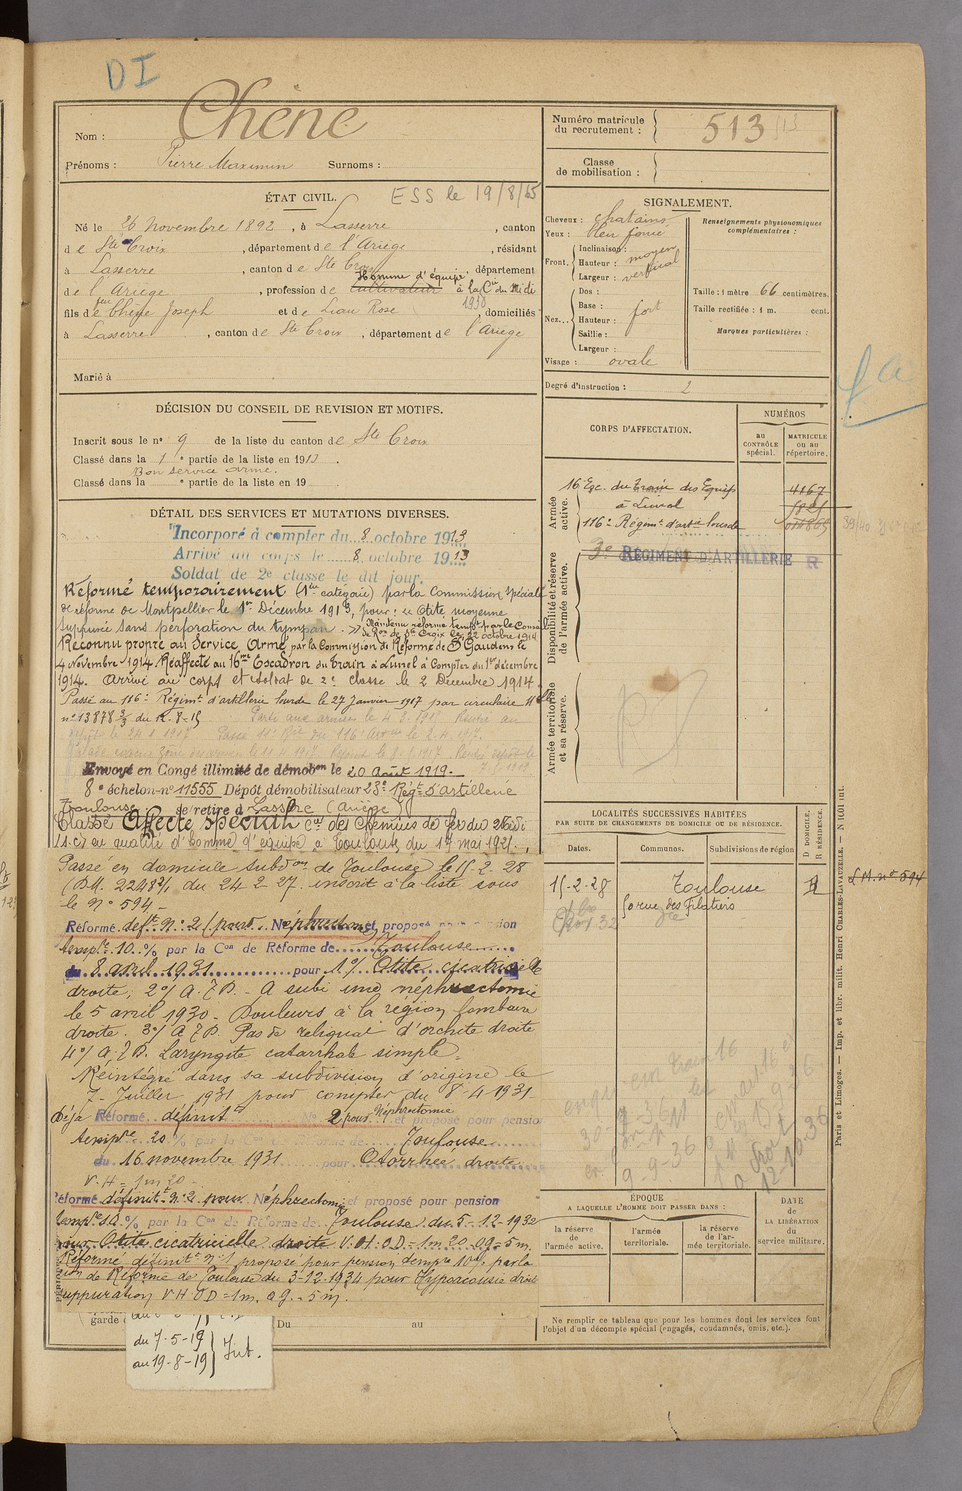 DI
Nom : Chêne
Prénoms : Pierre Maximin Surnoms :
Numéro matricule du recrutement : 513
Classe de mobilisation :
ÉTAT CIVIL. ESS le 19/8/65
Né le 26 Novembre 1892, à Lasserre, canton
de Ste Croix, département de l'Ariège, résidant
à Lasserre, canton de Ste Croix, département
Homme d'équipe
de l'Ariège, profession de cultivateur à la Cie du Midi
1930
fils de feu Chêne Joseph et de Liau Rose domiciliés
à Lasserre, canton de Ste Croix, département de l'Ariège
Marié à
DÉCISION DU CONSEIL DE REVISION ET MOTIFS.
Inscrit sous le n° 9 de la liste du canton de Ste Croix
Classé dans la 1e partie de la liste en 1913.
Bon service armé.
Classé dans la e partie de la liste en 19 .
DÉTAIL DES SERVICES ET MUTATIONS DIVERSES.
Incorporé à compter du 8 octobre 1913
Arrivé au corps le 8 octobre 1913
Soldat de 2e classe le dit jour.
Réformé temporairement (1ère catégorie) par la Commission spéciale
de réforme de Montpellier le 1er Décembre 1913, pour : Otite moyenne
suppurée sans perforation du tympan. Maintenu réformé tempre par le Conseil
de Ron de Ste Croix le 22 octobre 1914
Reconnu propre au Service Armé par la Commission de Réforme de St Gaudens le
4 novembre 1914. Réaffecté au 16me Escadron du train à Lunel à compter du 1er décembre
1914. Arrivé au corps et soldat de 2e classe le 2 Décembre 1914.
Passé au 116e Régimt d'artillerie lourde le 27 janvier 1917 par circulaire
n° 13878 3/3 du 12-8-15
Envoyé en Congé illimité de démobon le 20 Août 1919.
8e échelon n° 11555 Dépôt démobilisateur 23e Régt d'artillerie
Toulouse. se retire à Lasserre (Ariège)
Classé Affecté spécial Cie des Chemins de fer du Midi
en qualité d'homme d'équipe à Toulouse du 1er mai 1921.
Passé en domicile subdon de Toulouse le 15-2-28
du 24-2-27 inscrit à la liste sous
le N° 594-
Réformé deft N° 2 (pour Néphrectomie et proposé pour pension
tempre 10 % par la Con de Réforme de Toulouse
du 8 avril 1931 pour 1°/ Otite cicatricielle
droite, 2°/ A.J.P. A subi une néphrectomie
le 5 avril 1930 - Douleurs à la région lombaire
droite. 3°/ A.J.P. Pas de reliquat d'orchite droite
4°/ A.J.P. Laryngite catarrhale simple.
Réintégré dans sa subdivision d'origine le
7 Juillet 1931 pour compter du 8-4-1931
Déjà Réformé définit N° 2 pour Néphrectomie et proposé pour pension
tempre 20 % par la Con de Réforme de Toulouse
du 16 novembre 1931 pour Otorrhée droite
V.H = 1m 20 -
Réformé définitt N° 2 pour Néphrectomie et proposé pour pension
% par la Con de Réforme de Toulouse du 5-12-1932
pour Otite cicatricielle droite V.H. O.D = 1m 20 O.G = 5m
Réformé définitt N° 1 proposé pour pension tempre 10% par la
Con de Réforme de Toulouse du 3-12-1934 pour Hypoacousie droite
suppuration V H O D = 1m. O g. = 5m.
garde Du au
du 7-5-19
au 19-8-19 Int.
SIGNALEMENT.
Cheveux : chatains
Yeux : bleu foncé
Front. Inclinaison :
Hauteur : moyen
Largeur : vertical
Nez... Dos :
Base :
Hauteur : fort
Saillie :
Largeur :
Visage : ovale
Renseignements physionomiques complémentaires :
Taille : 1 mètre 66 centimètres.
Taille rectifiée : 1 m. cent.
Marques particulières :
Degré d'instruction : 2
CORPS D'AFFECTATION.
NUMÉROS
au CONTRÔLE spécial.
MATRICULE ou au répertoire.
Armée active.
16 Esc. du train des Equip 4167
à Lunel
116e Régimt d'artie lourde
Disponibilité et réserve de l'armée active.
3e RÉGIMENT D'ARTILLERIE R
Armée territoriale et sa réserve.
LOCALITÉS SUCCESSIVES HABITÉES
PAR SUITE DE CHANGEMENTS DE DOMICILE OU DE RÉSIDENCE.
Dates. Communes. Subdivisions de région
D DOMICILE, R RÉSIDENCE.
15-2-28 Toulouse R
rue des Filatiers
M. n° 594
9-9-36
12-10-36
ÉPOQUE
A LAQUELLE L'HOMME DOIT PASSER DANS :
la réserve de l'armée active.
l'armée territoriale.
la réserve de l'armée territoriale.
DATE DE LA LIBÉRATION du service militaire.
Ne remplir ce tableau que pour les hommes dont les services font
l'objet d'un décompte spécial (engagés, condamnés, omis, etc.).
Paris et Limoges. — Imp. et libr. milit. Henri CHARLES-LAVAUZELLE.